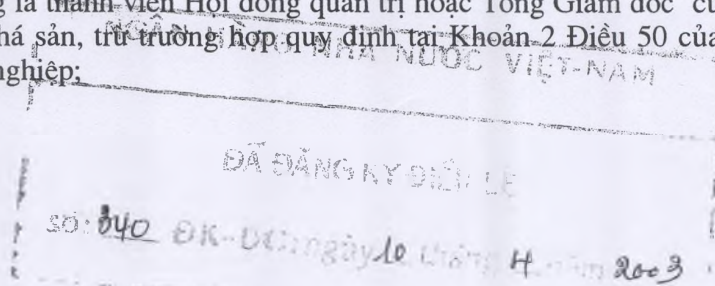 là thành viên Hội đồng quản trị hoặc Tổng Giám đốc
sản, trừ trường hợp quy định tại Khoản 2 Điều 50 của
nghiệp;
NHÀ NƯỚC VIỆT-NAM
ĐÃ ĐĂNG KÝ ĐIỀU LỆ
SỐ: 340 ĐK- ngày 10 tháng 4 năm 2003